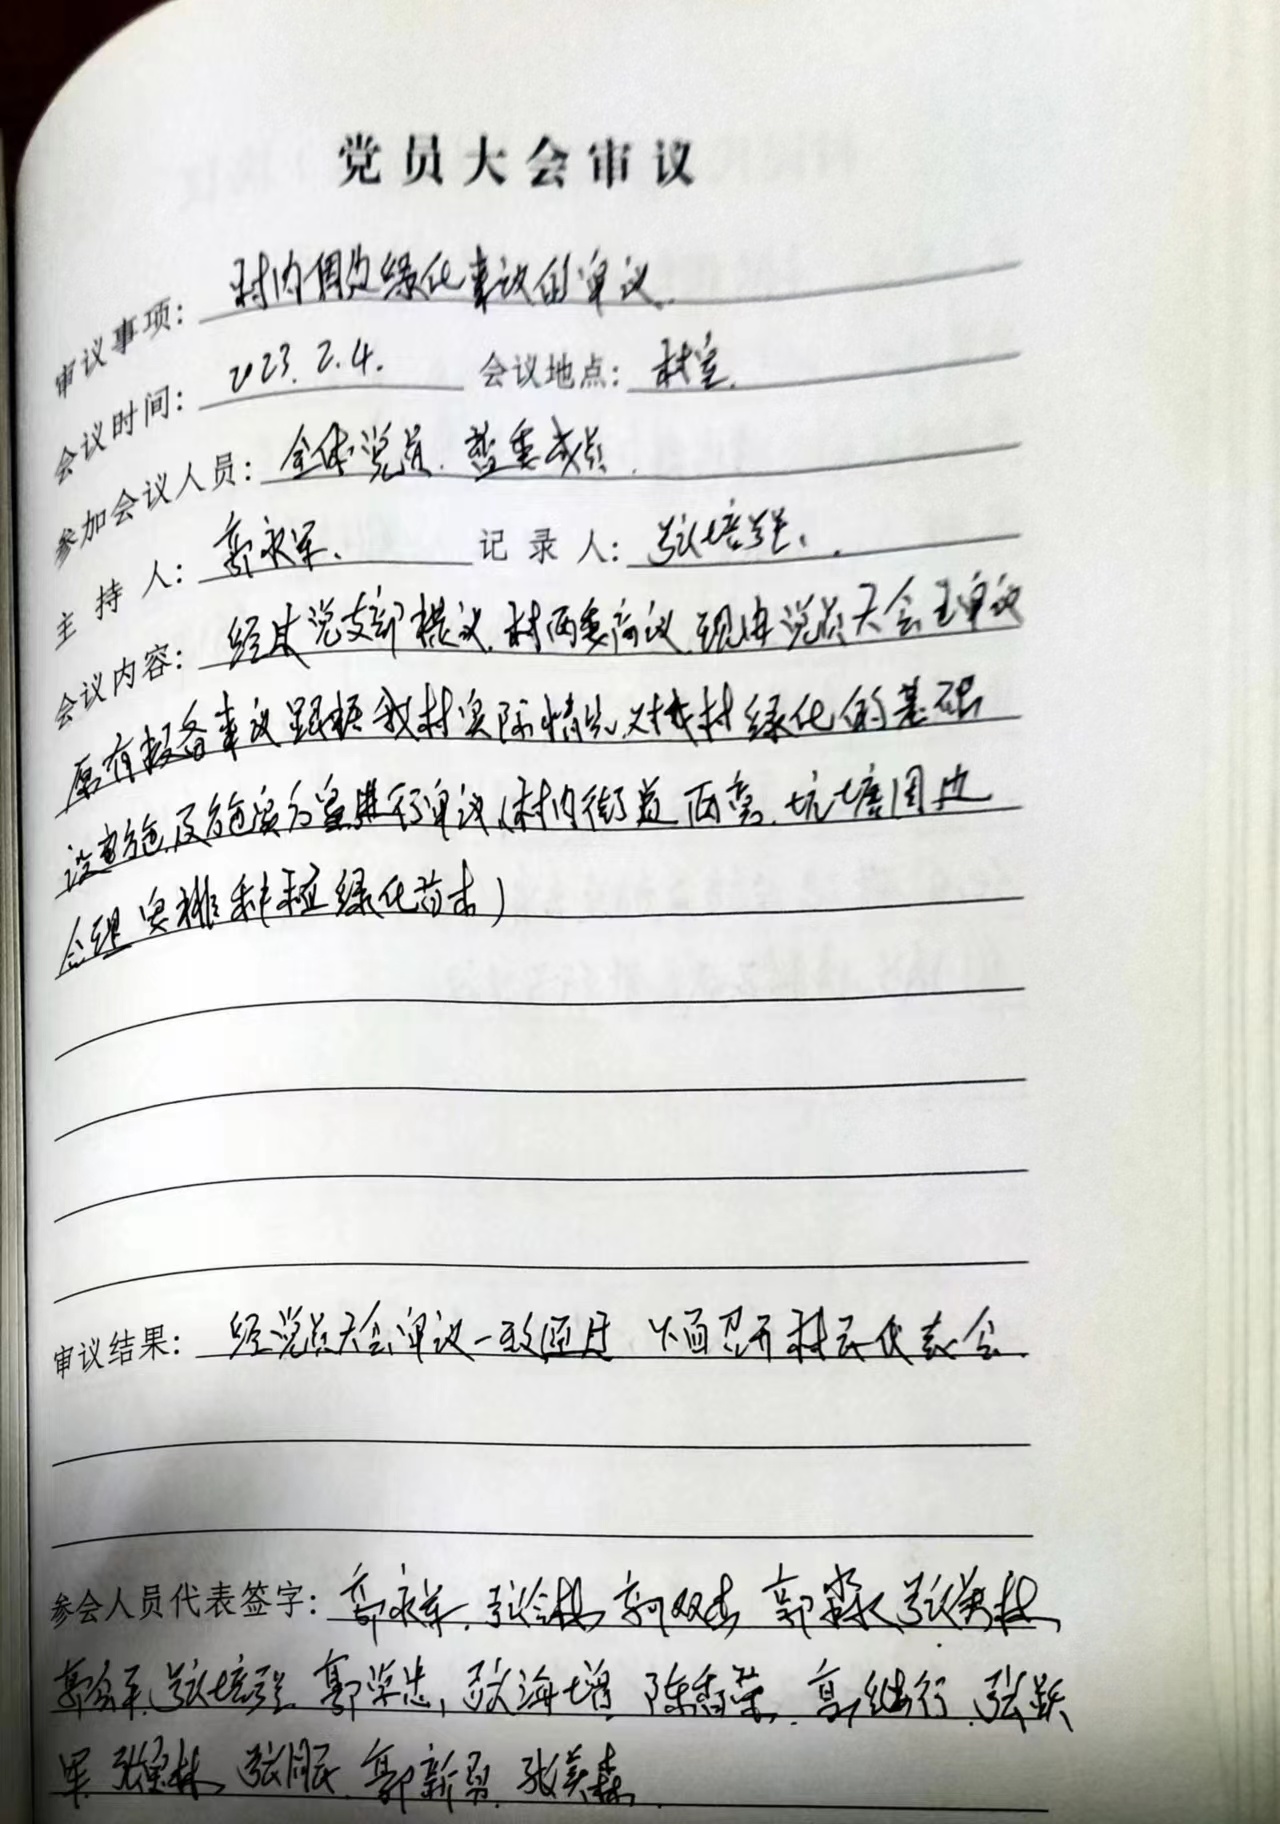 党员大会审议
审议事项：村内周边绿化事议的审议.
会议时间：2023.2.4. 会议地点：村室.
参加会议人员：全体党员.委成员.
主持人：郭永军、 记录人：张培强.
会议内容：经过党支部提议.村两委商议.现由党员大会审议
事议跟据我村实际情况.对我村绿化的基础
设施及施实方案进行审议(村内街道两旁.坑塘周边
安排种植绿化苗木)
审议结果：经党员大会审议一致通过 下面召开村民代表会.
参会人员代表签字：郭永军.张林 郭双
张培强 郭学忠,张海增 陈香荣.高继行.张跃
军.张宝林 张同民.郭新勇.张英森.